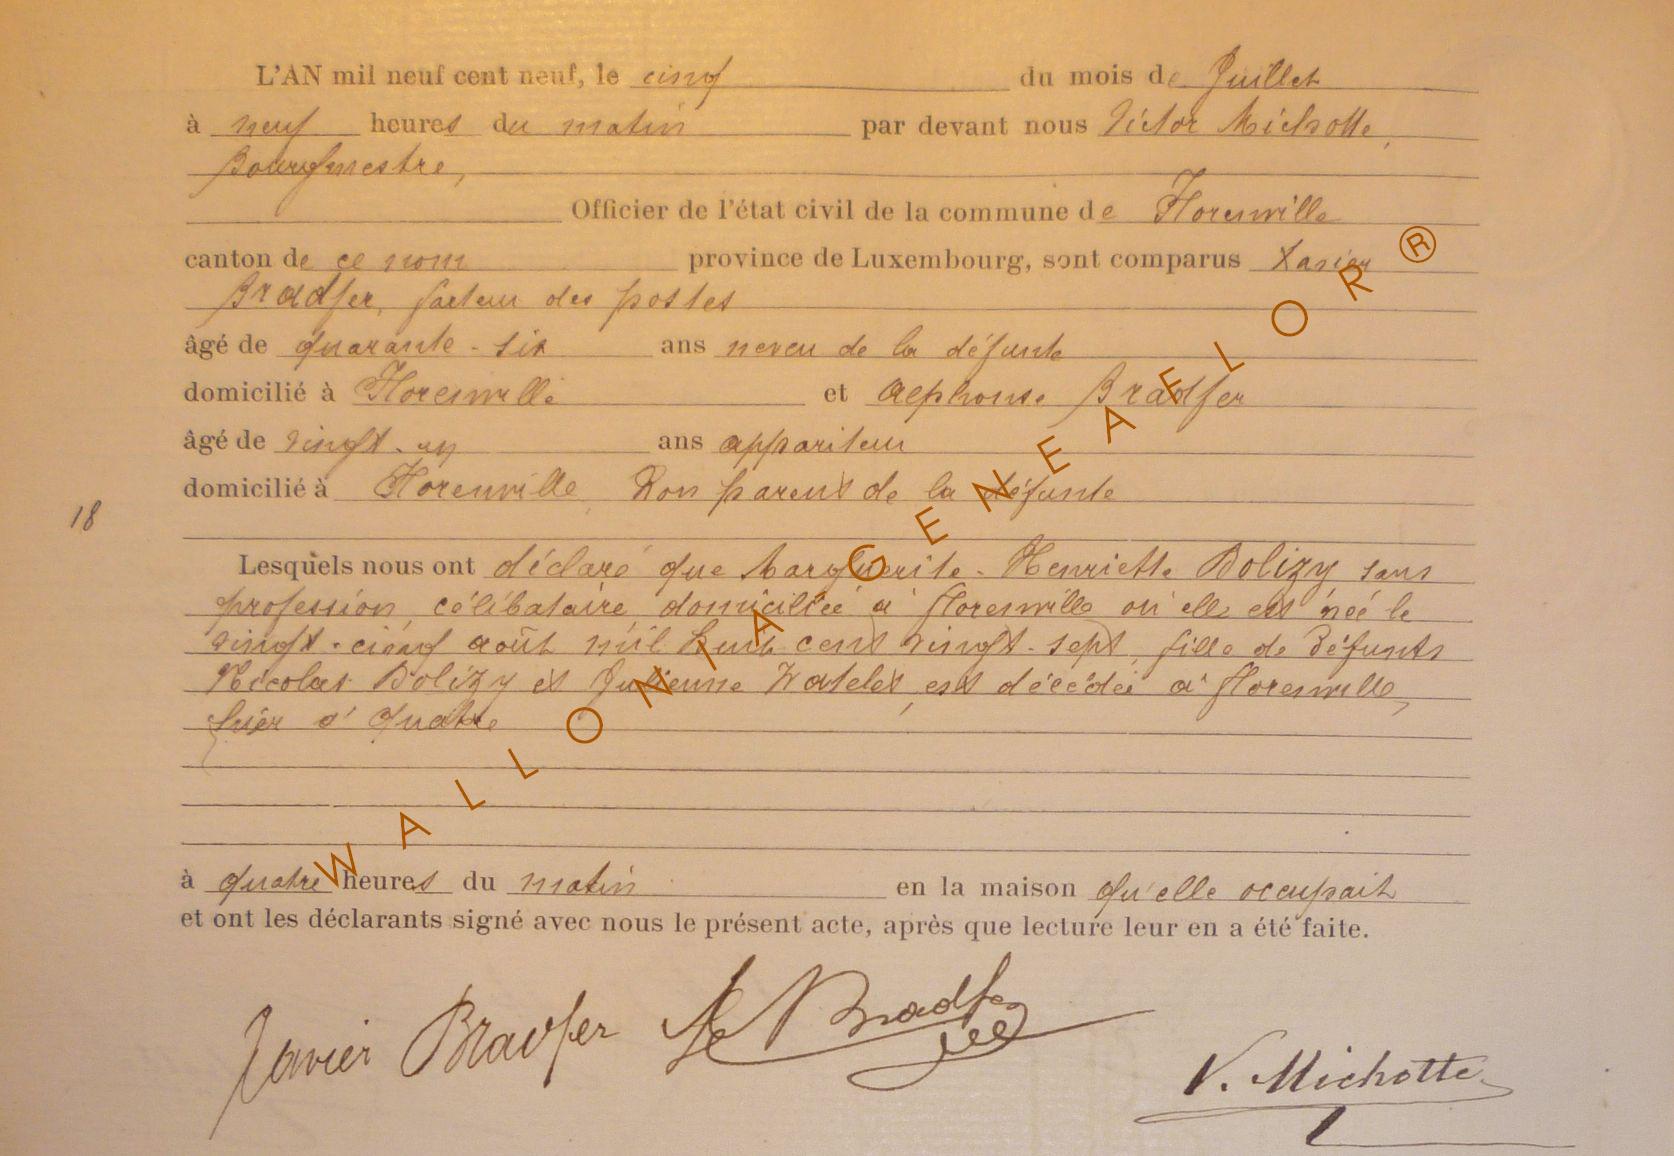 L'AN mil neuf cent neuf, le cinq du mois de Juillet
à neuf heures du matin par devant nous Victor Michotte,
Bourgmestre,
Officier de l'état civil de la commune de Florenville
canton de ce nom province de Luxembourg, sont comparus Xavier
Bradfer, facteur des postes
âgé de quarante-six ans neveu de la défunte
domicilié à Florenville et Alphonse Bradfer
âgé de vingt-un ans appariteur
domicilié à Florenville, Non parent de la défunte
18
Lesquels nous ont déclaré que Marguerite-Henriette Bolizy sans
profession, célibataire, domiciliée à Florenville où elle est née le
vingt-cinq août mil huit cent vingt-sept, fille de Défunts
Nicolas Bolizy et Julienne Watelet, est décédée à Florenville,
hier à quatre
à quatre heures du matin en la maison qu'elle occupait
et ont les déclarants signé avec nous le présent acte, après que lecture leur en a été faite.
Xavier Bradfer Bradfer V. Michotte
WALLONIA GENEAFLOR ®